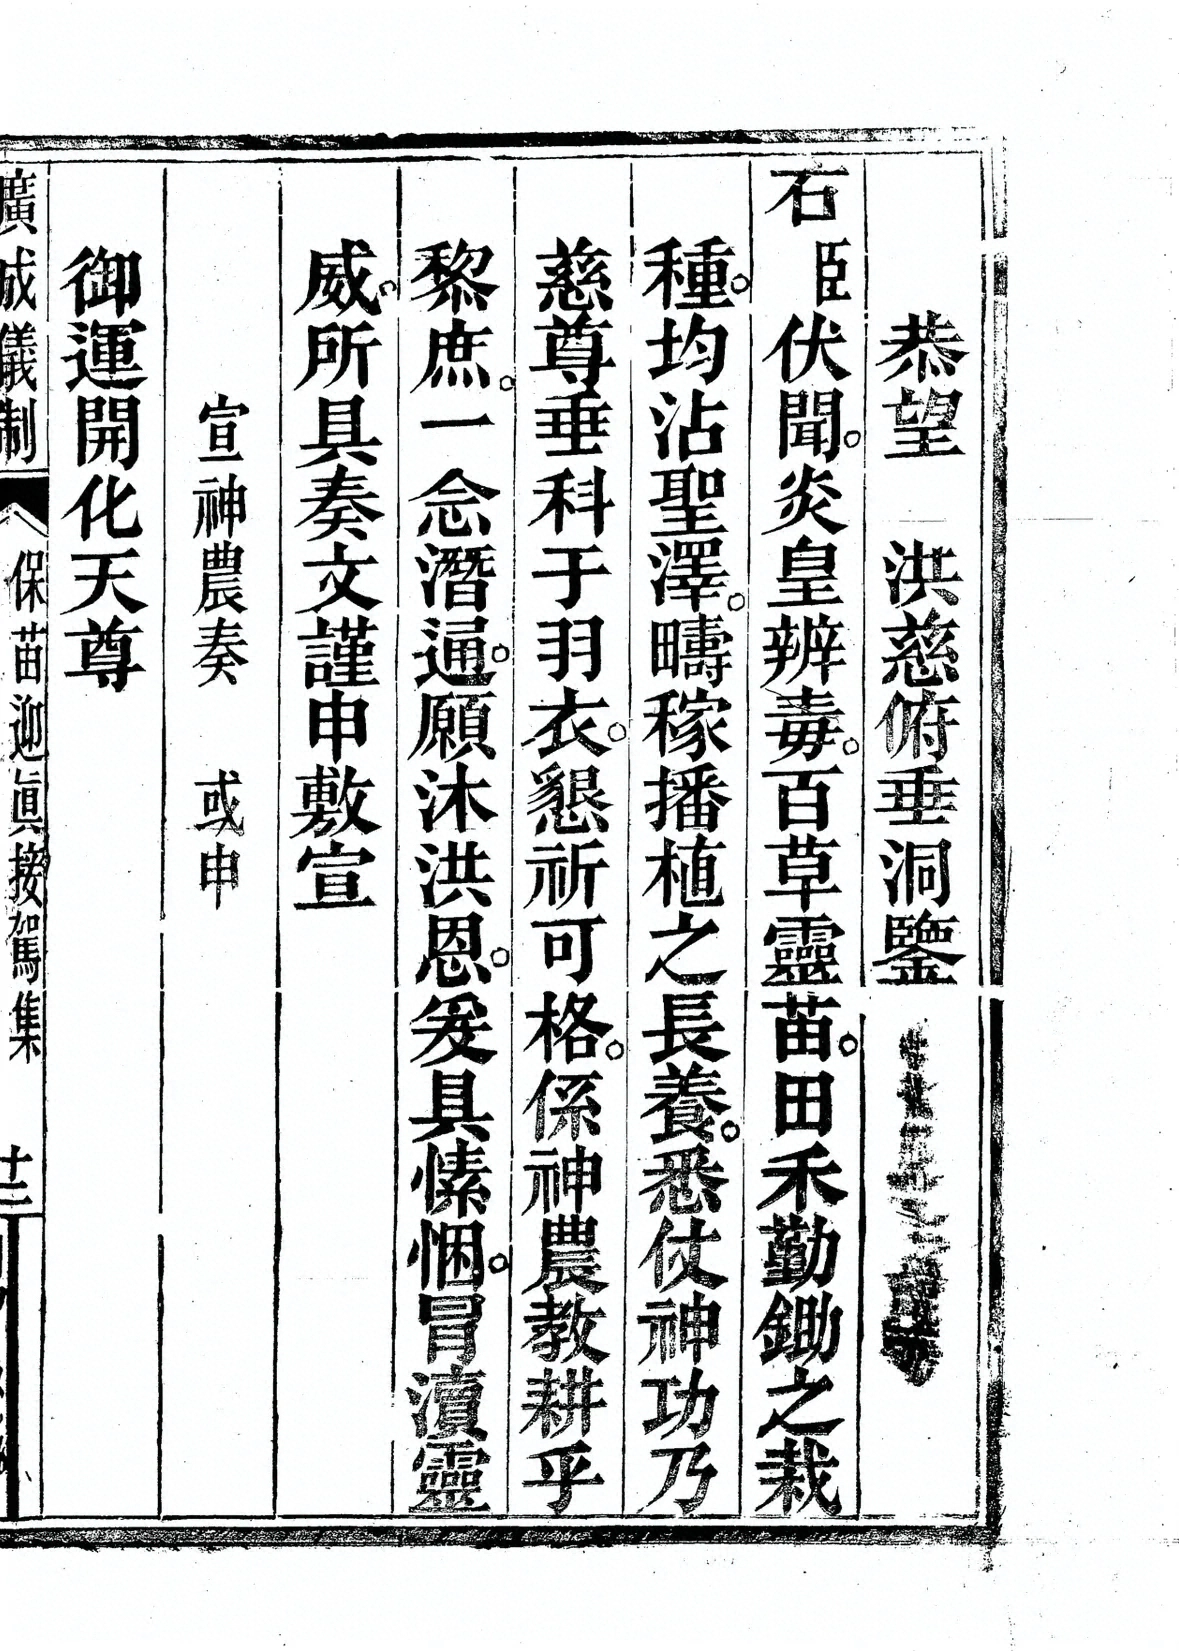 恭望　洪慈俯垂洞鑒
石臣伏聞。炎皇辨毒。百草靈苗。田禾勤鋤之栽
種。均沾聖澤。疇稼播植之長養。悉仗神功乃
慈尊垂科于羽衣。懇祈可格。係神農教耕乎
黎庶。一念潛通。願沐洪恩。爰具愫悃。冒瀆靈
威。所具奏文謹申敷宣
宣神農奏　或申
御運開化天尊
廣成儀制　保苗迎真接駕集　十三